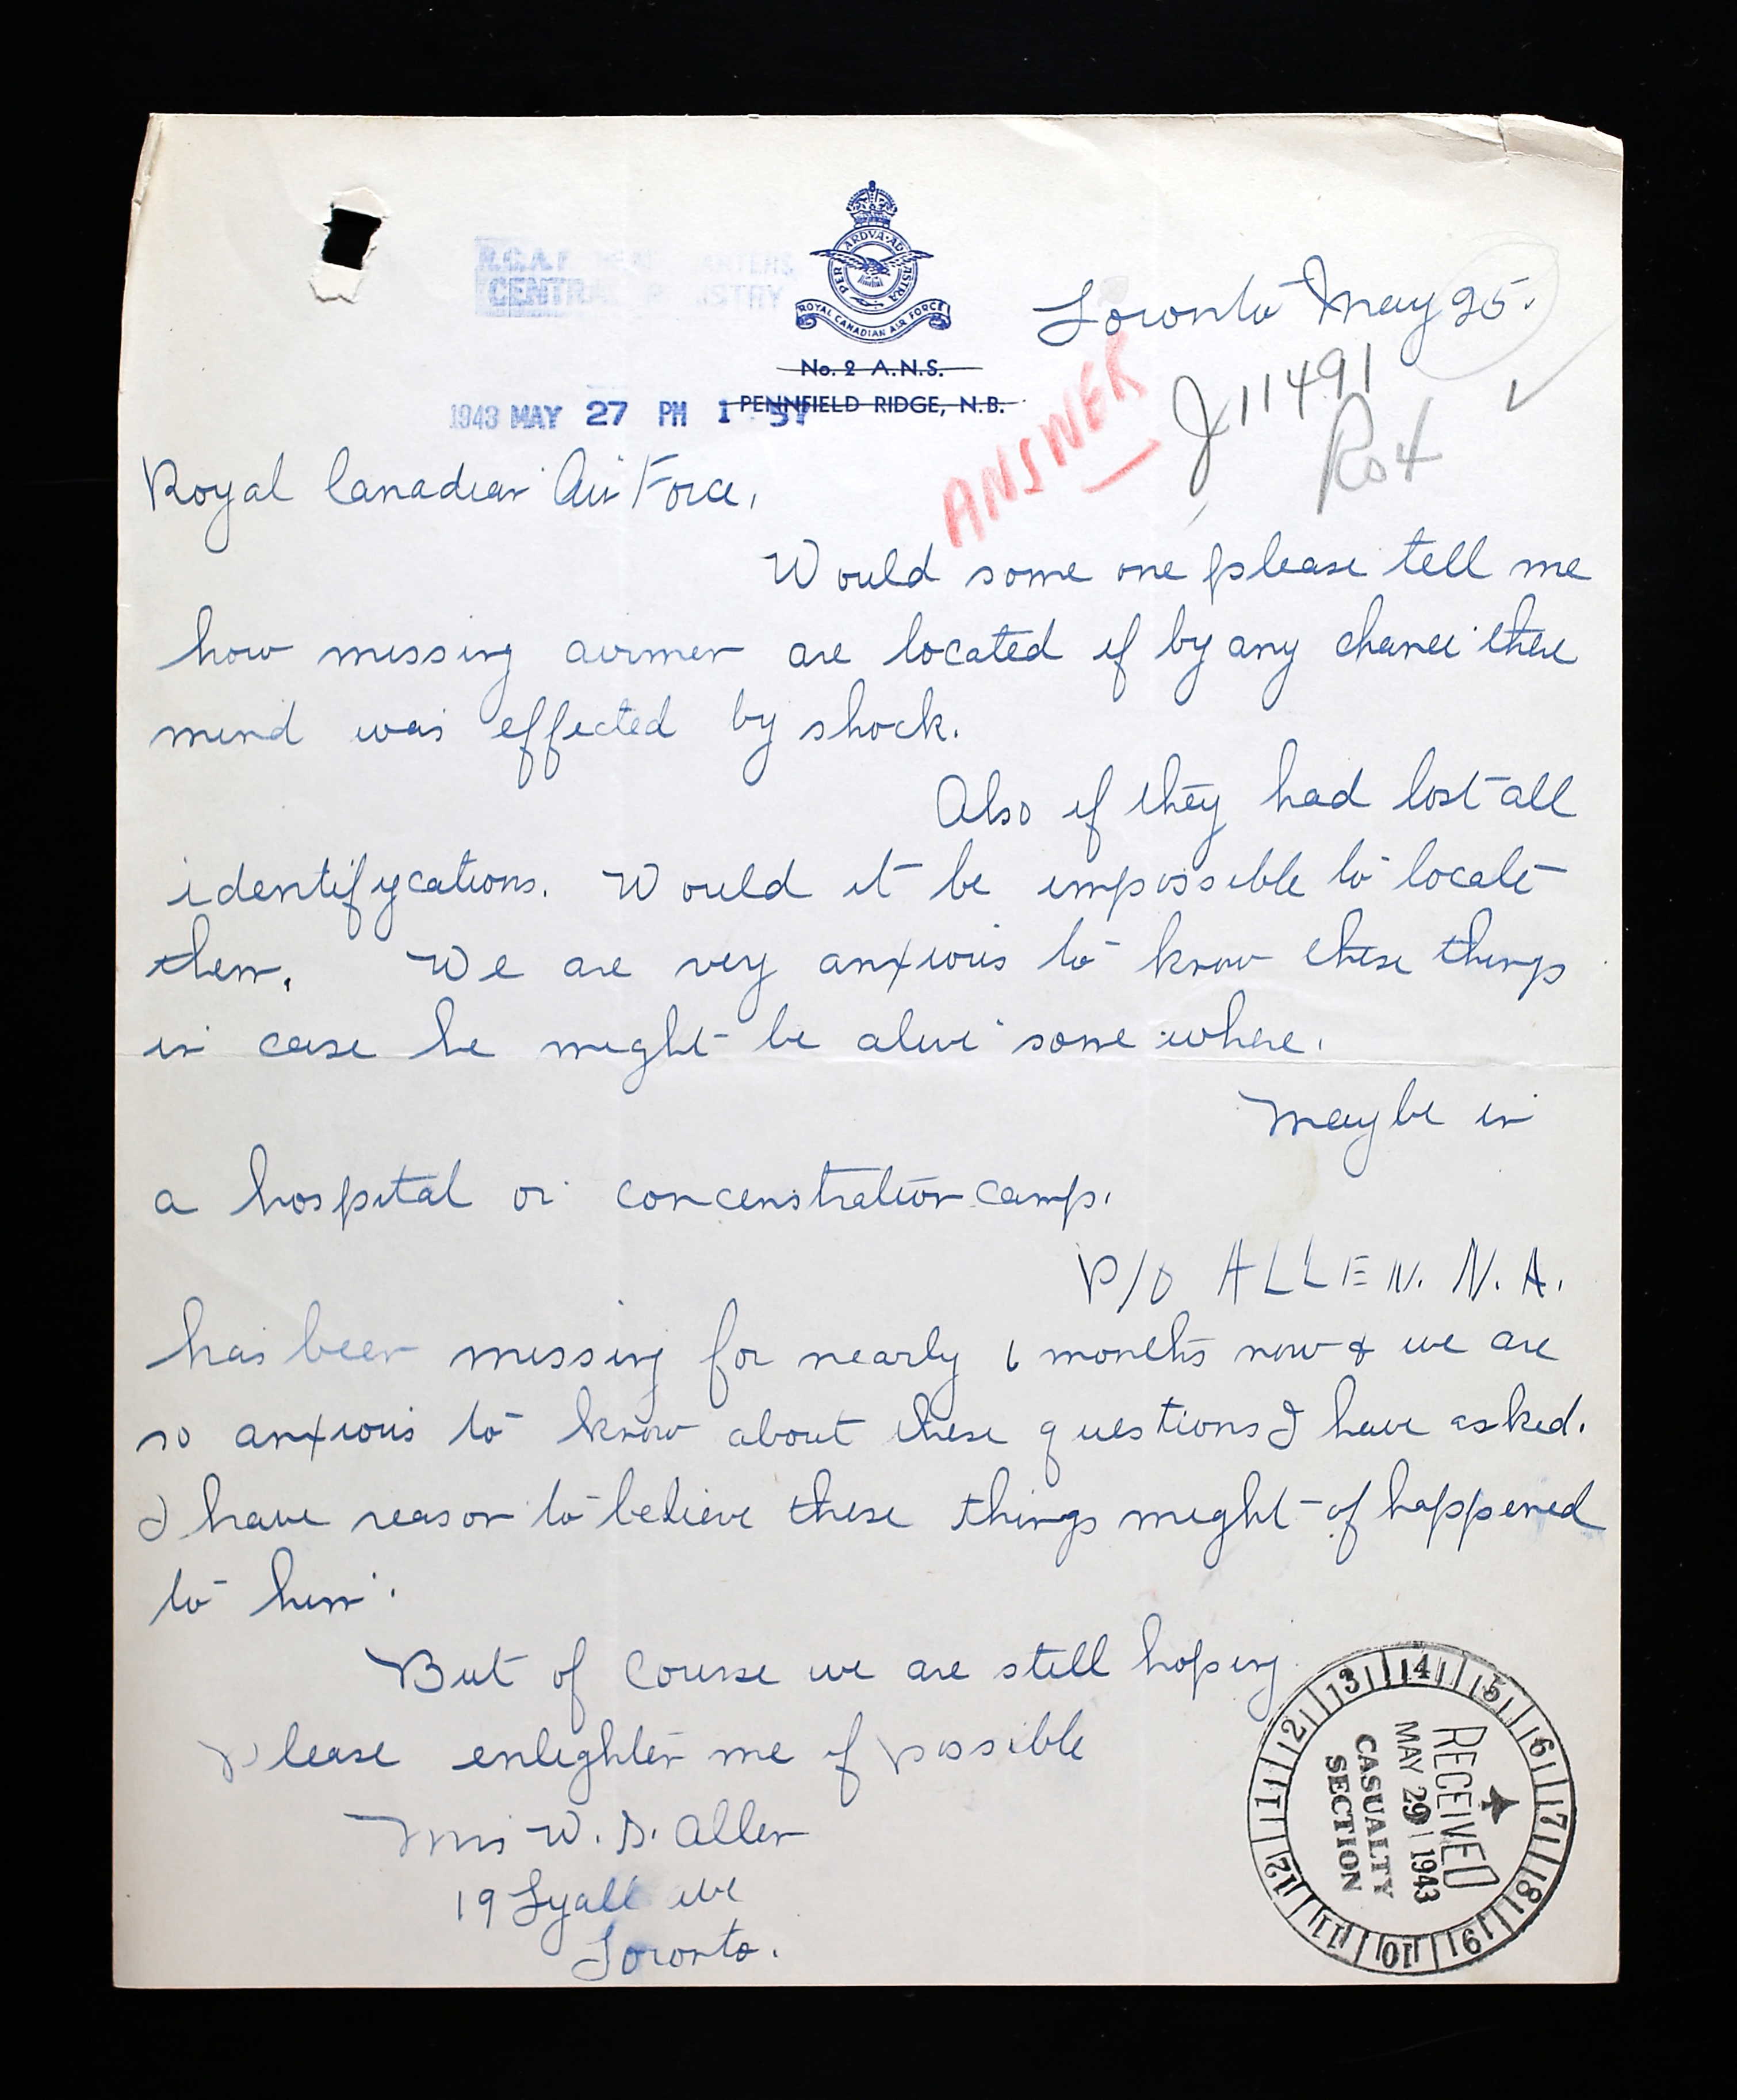 R.C.A.F. HEADQUARTERS
CENTRAL REGISTRY
PER ARDVA AD ASTRA
ROYAL CANADIAN AIR FORCE
Toronto May 25.
No. 2 A.N.S.
PENNFIELD RIDGE, N.B.
1943 MAY 27 PM 1 57
ANSWER
J11491
Royal Canadian Air Force,
Would some one please tell me
how missing airmen are located if by any chance there
mind was effected by shock.
Also if they had lost all
identifycations. Would it be impossible to locate
them. We are very anxious to know these things
in case he might be alive some where.
Maybe in
a hospital or concenstration camp.
P/O ALLEN. N.A.
has been missing for nearly 6 months now & we are
so anxious to know about these questions I have asked.
I have reason to believe these things might of happened
to him.
But of course we are still hoping
please enlighten me if possible
Mrs W. D. Allen
19 Lyall ave
Toronto.
RECEIVED
MAY 29 1943
CASUALTY
SECTION
1 2 3 4 5 6 7 8 9 10 11 12